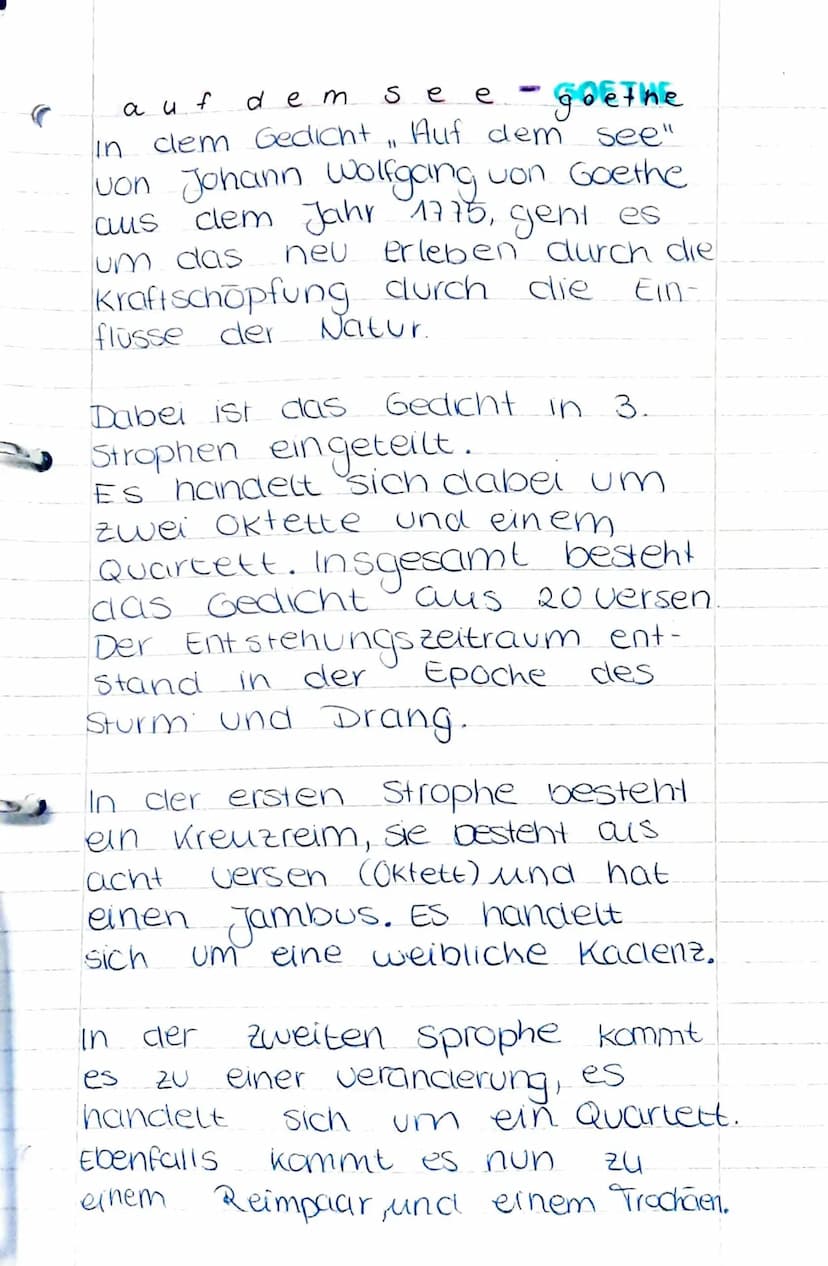 auf dem see - goethe
In dem Gedicht „Auf dem see"
von Johann Wolfgang von Goethe
aus dem Jahr 1775, geht es
um das neu erleben durch die
Kraftschöpfung durch die Ein-
flüsse der Natur.
Dabei ist das Gedicht in 3.
Strophen eingeteilt.
Es handelt sich dabei um
zwei Oktette und einem
Quartett. Insgesamt besteht
das Gedicht aus 20 Versen.
Der Entstehungszeitraum ent-
stand in der Epoche des
Sturm und Drang.
In der ersten Strophe besteht
ein Kreuzreim, sie besteht aus
acht Versen (Oktett) und hat
einen Jambus. Es handelt
sich um eine weibliche Kadenz.
In der zweiten Sprophe kommt
es zu einer Veränderung, es
handelt sich um ein Quartett.
Ebenfalls kommt es nun zu
einem Reimpaar, und einem Trochäen.